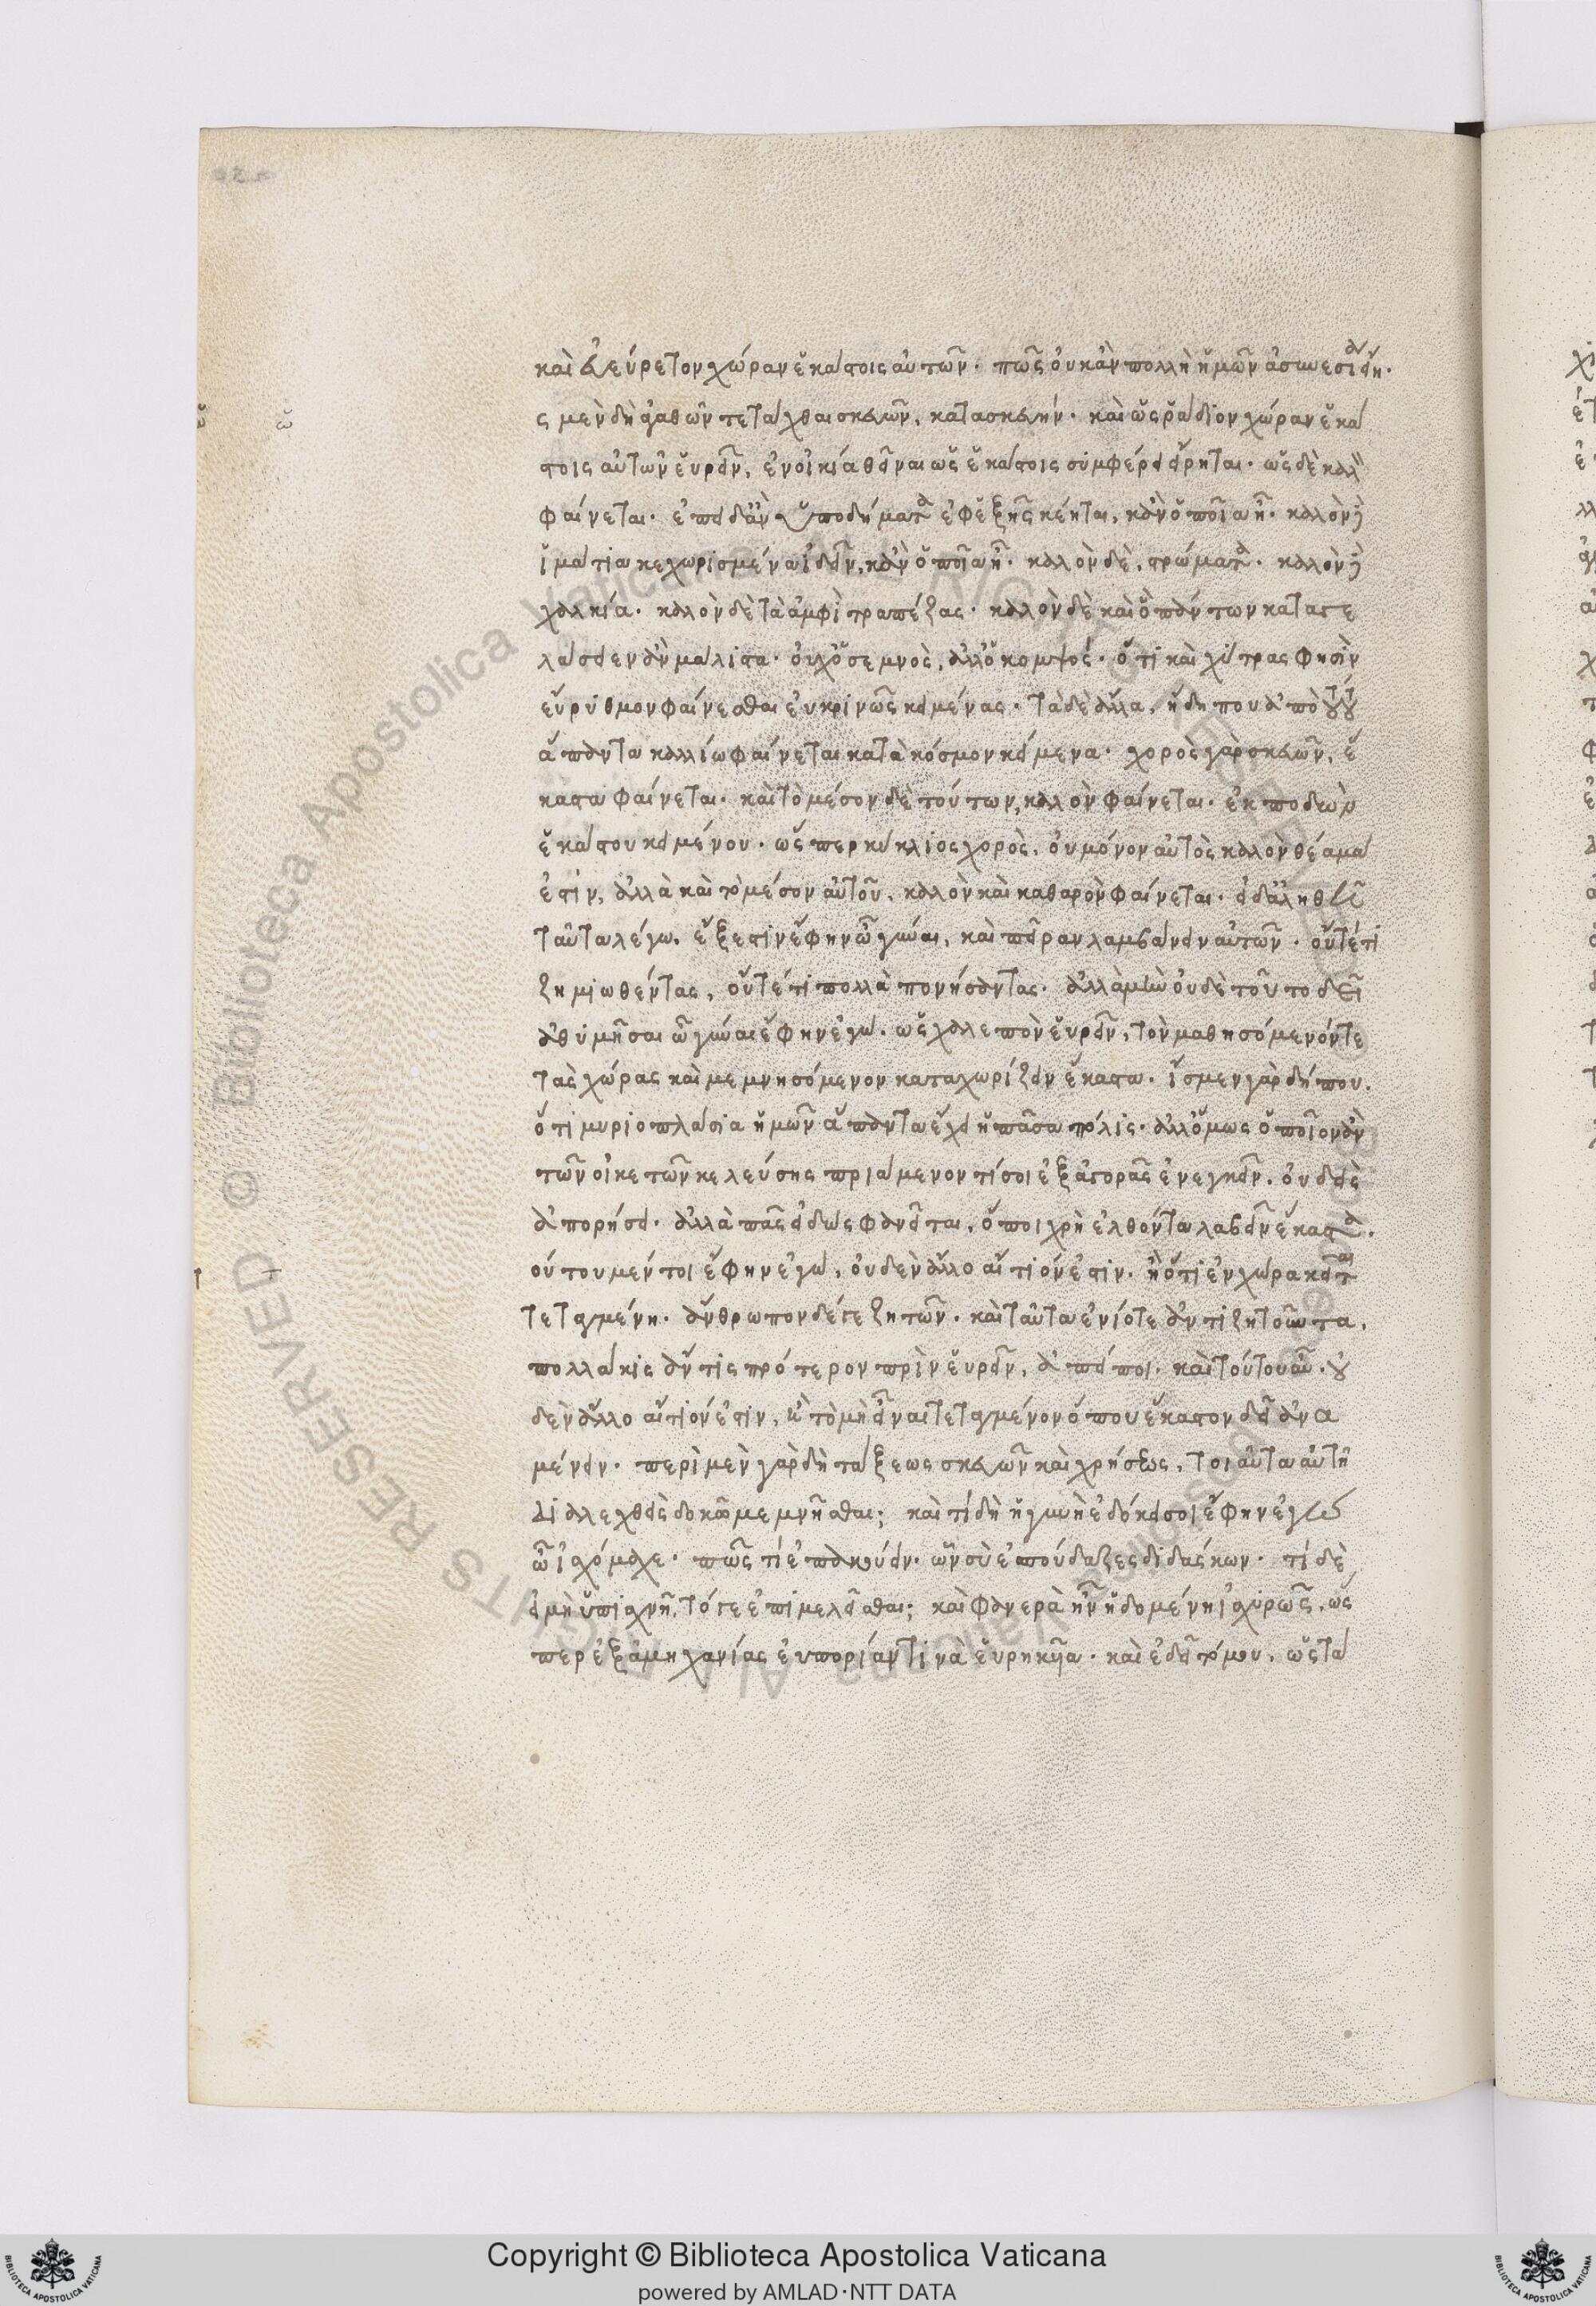 καὶ εὐεύρετον χώραν ἑκάστοις αὐτῶν. πῶς οὐκ ἂν πολλὴ ἡμῶν ἀσυνεσία εἴη.
ς μὲν δὴ ἀγαθῶν τετάχθαι σκευῶν, κατασκευήν. καὶ ὡς ῥάδιον χώραν ἑκά
στοις αὐτῶν εὑρεῖν, ἐν οἰκία θεῖναι ὡς ἑκάστοις συμφέρει εἴρηται. ὡς δὲ καλὸν
φαίνεται. ἐπειδὰν ὑποδήματα ἐφεξῆς κέηται, κἂν ὁποῖα ἦ. καλὸν δὲ
ἱμάτια κεχωρισμένα ἰδεῖν, κἂν ὁποῖα ἦ. καλὸν δὲ, στρώματα. καλὸν δὲ
χαλκία. καλὸν δὲ τὰ ἀμφὶ τραπέζας. καλὸν δὲ καὶ ὃ πάντων καταγε
λάσειεν ἂν μάλιστα. οὐχ ὁ σεμνὸς, ἀλλ' ὁ κομψός. ὅτι καὶ χύτρας φησὶν
εὔρυθμον φαίνεσθαι εὐκρινῶς κειμένας. τὰ δὲ ἄλλα, ἤδη που ἀπὸ τούτου
ἅπαντα καλλίω φαίνεται κατὰ κόσμον κείμενα. χορος γὰρ σκευῶν, ἕ
καστα φαίνεται. καὶ τὸ μέσον δὲ τούτων, καλὸν φαίνεται. ἐκποδὼν
ἑκάστου κειμένου. ὥσπερ κύκλιος χορὸς, οὐ μόνον αὐτὸς καλὸν θέαμά
ἐστιν, ἀλλὰ καὶ τὸ μέσον αὐτοῦ, καλὸν καὶ καθαρὸν φαίνεται. εἰ δ' ἀληθῆ
ταῦτα λέγω. ἔξεστιν ἔφην ὦ γύναι, καὶ πεῖραν λαμβάνειν αὐτῶν. οὔτέ τι
ζημιωθέντας, οὔτέ τι πολλὰ πονήσαντας. ἀλλὰ μὴν οὐδὲ τοῦτο δεῖ
ἀθυμῆσαι ὦ γύναι ἔφην ἐγώ. ὡς χαλεπὸν εὑρεῖν, τὸν μαθησόμενόν τε
τὰς χώρας καὶ μεμνησόμενον καταχωρίζειν ἕκαστα. ἴσμεν γὰρ δήπου.
ὅτι μυριοπλάσια ἡμῶν ἅπαντα ἔχει ἡ πᾶσα πόλις. ἀλλ' ὅμως ὁποῖον ἂν
τῶν οἰκετῶν κελεύσης πριάμενον τί σοι ἐξ ἀγορᾶς ἐνεγκεῖν. οὐδεὶς
ἀπορήσει. ἀλλὰ πᾶς εἰδὼς φανεῖται, ὅποι χρὴ ἐλθόντα λαβεῖν ἕκαστα.
τούτου μέντοι ἔφην ἐγώ, οὐδὲν ἄλλο αἴτιόν ἐστιν. ἢ ὅτι ἐν χώρα κεῖται
τεταγμένη. ἄνθρωπον δέ γε ζητῶν. καὶ ταῦτα ἐνίοτε ἀντιζητοῦντα.
πολλάκις ἄν τις πρότερον πρὶν εὑρεῖν, ἀπείποι. καὶ τούτου αὖ. οὐ
δὲν ἄλλο αἴτιόν ἐστιν, ἢ τὸ μὴ εἶναι τεταγμένον ὅπου ἕκαστον δεῖ ἀνα
μένειν. περὶ μὲν γὰρ δὴ τάξεως σκευῶν καὶ χρήσεως, τοιαῦτα αὐτῆ
διαλεχθεὶς δοκῶ μεμνῆσθαι; καὶ τί δὴ ἡ γυνὴ ἐδόκει σοι ἔφην ἐγὼ
ὦ ἰσχόμαχε. πῶς τί ἐπακούειν. ὧν σὺ ἐσπούδαζες διδάσκων. τί δὲ
εἰ μὴ ὑπισχνῆτό γε ἐπιμελεῖσθαι; καὶ φανερὰ ἦν ἡδομένη ἰσχυρῶς, ὥς
περ ἐξ ἀμηχανίας εὐπορίαν τινὰ εὑρηκυῖα. καὶ ἐδεῖτό μου. ὡς τά
Copyright © Biblioteca Apostolica Vaticana
powered by AMLAD·NTT DATA